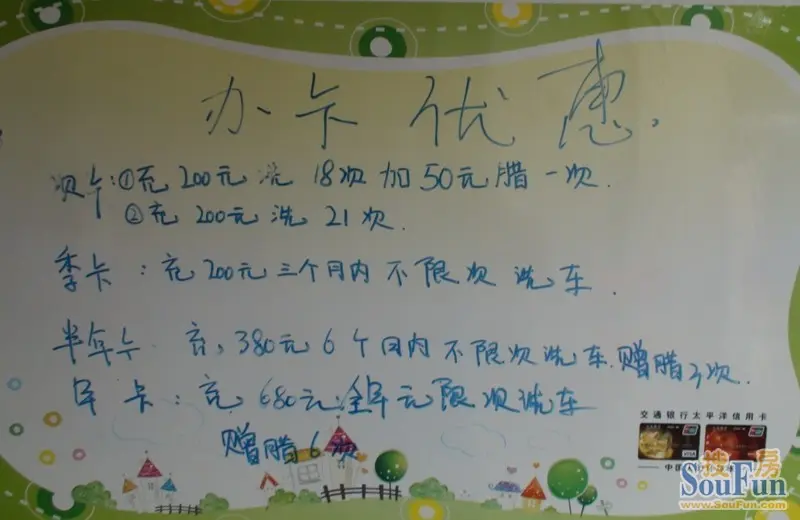 办卡优惠.
次卡:①充200元洗18次加50元腊一次.
②充200元洗21次.
季卡:充200元三个月内不限次洗车.
半年卡 充,380元6个月内不限次洗车.赠腊3次.
年卡:充680元.全年无限次洗车
赠腊6次
交通银行太平洋信用卡
搜房
SouFun
www.SouFun.com